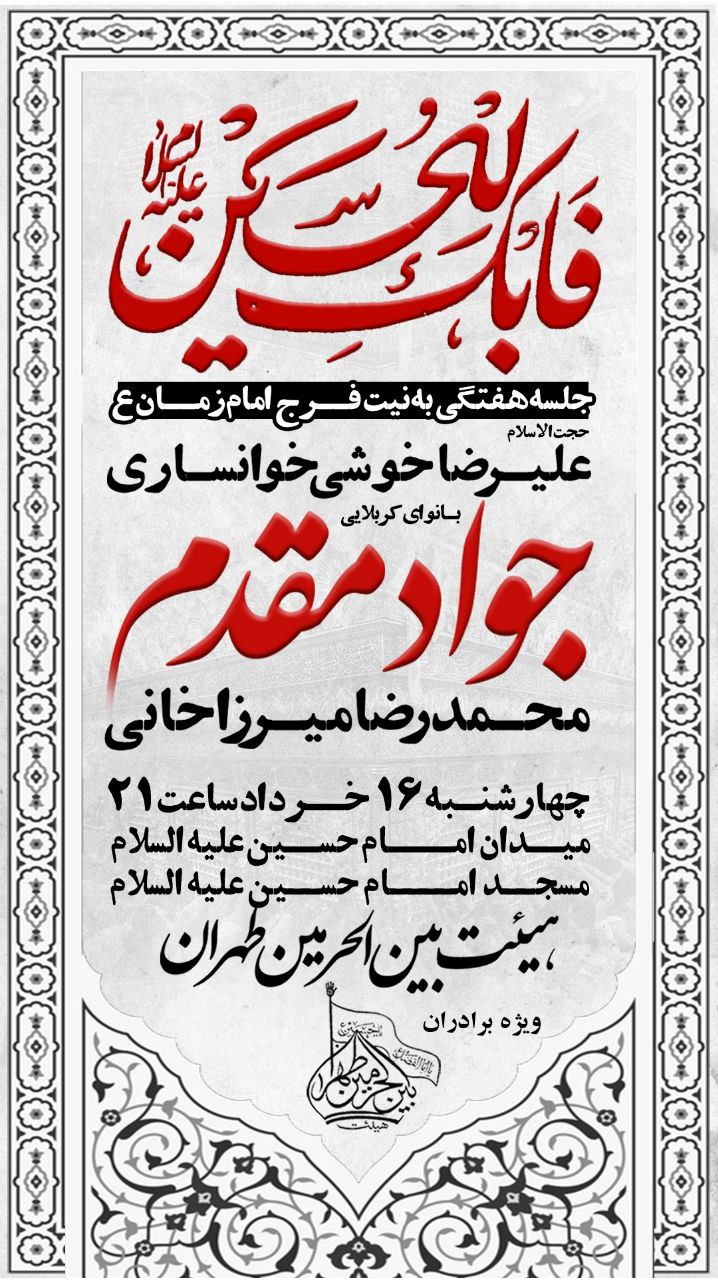 فَابْكِ لِلْحُسَیْنِ علیه السلام
جلسه هفتگی به نیت فرج امام زمان ع
حجت الاسلام
علیرضا خوشی خوانساری
بانوای کربلایی
جواد مقدم
محمدرضا میرزاخانی
چهارشنبه ۱۶ خرداد ساعت ۲۱
میدان امام حسین علیه السلام
مسجد امام حسین علیه السلام
هیئت بین الحرمین طهران
ویژه برادران
یا حسین
یا اباالفضل
بین الحرمین طهران
هیئت